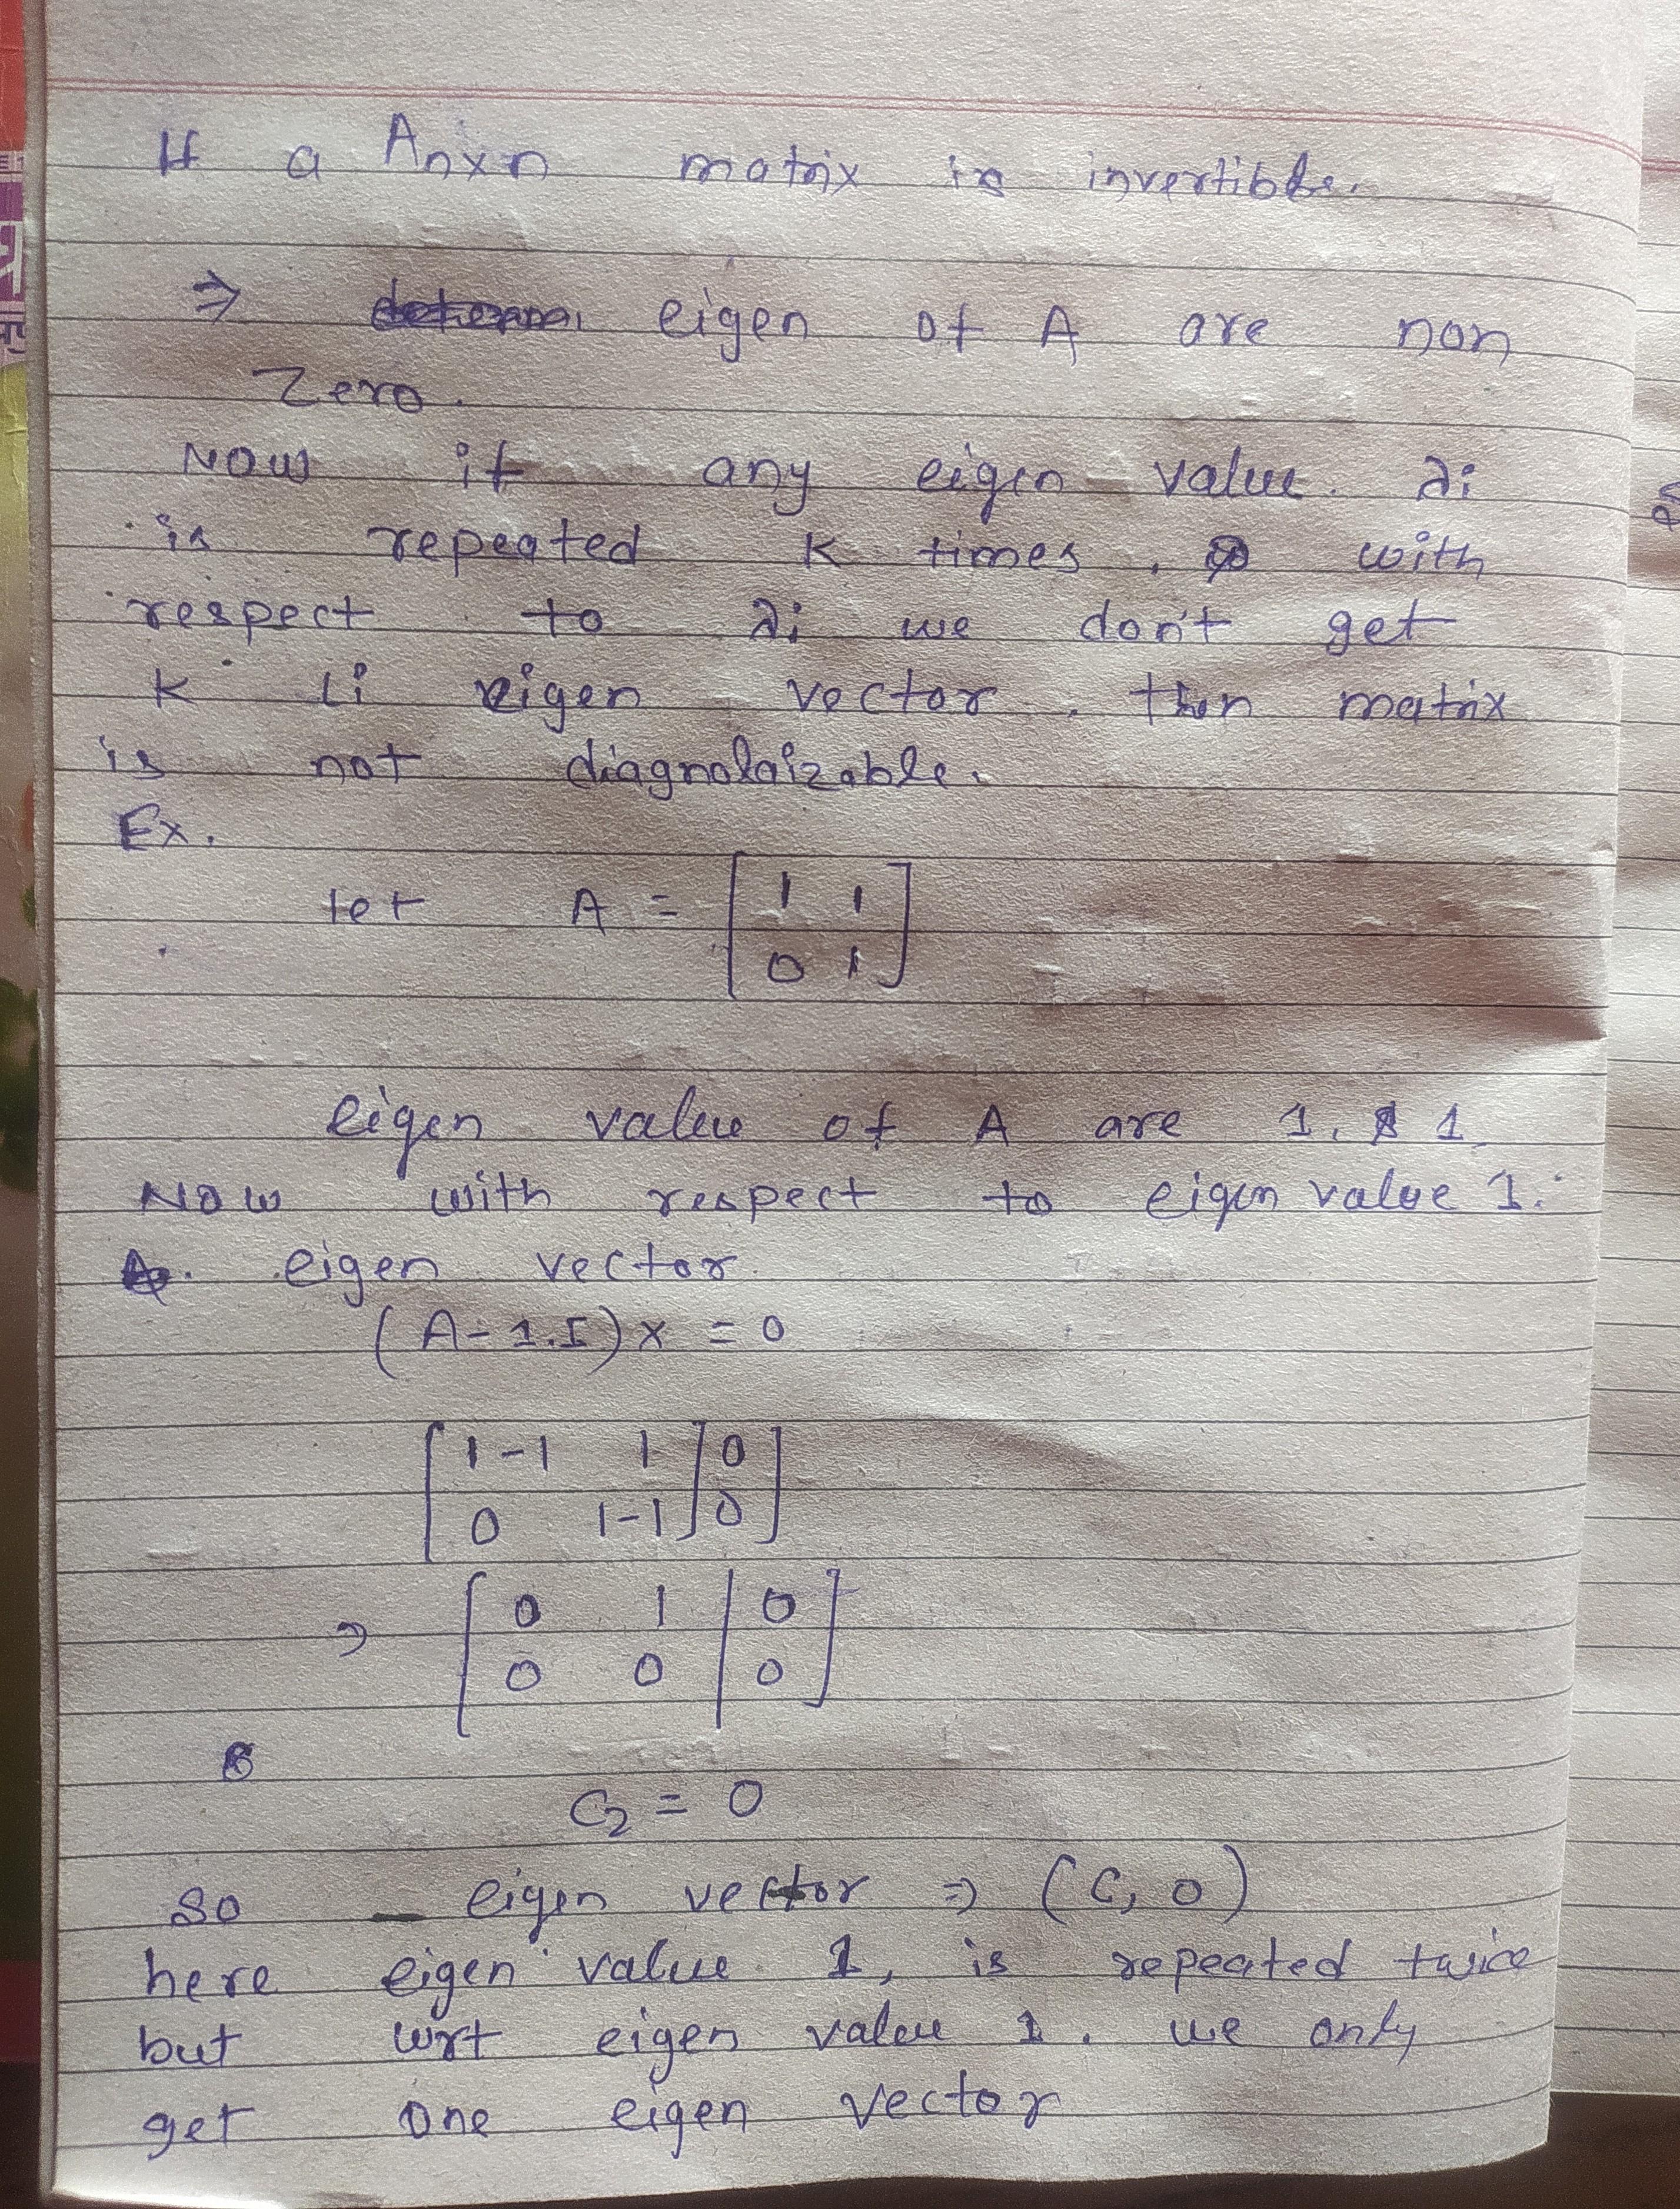 If a Anxn matrix is invertible.
⇒ eigen of A are non
Zero.
Now if any eigen value λi
is repeated K times, with
respect to λi we don't get
K Li eigen vector, then matrix
is not diagnolaizable.
Ex.
let A = [1 1
0 1]
eigen value of A are 1, 1
Now with respect to eigen value 1.
eigen vector
(A-1.I)x = 0
[1-1 1][0]
[0 1-1][0]
⇒ [0 1 | 0]
[0 0 | 0]
C2 = 0
So eigen vector ⇒ (C, 0)
here eigen value 1, is repeated twice
but wrt eigen value 1. we only
get one eigen vector